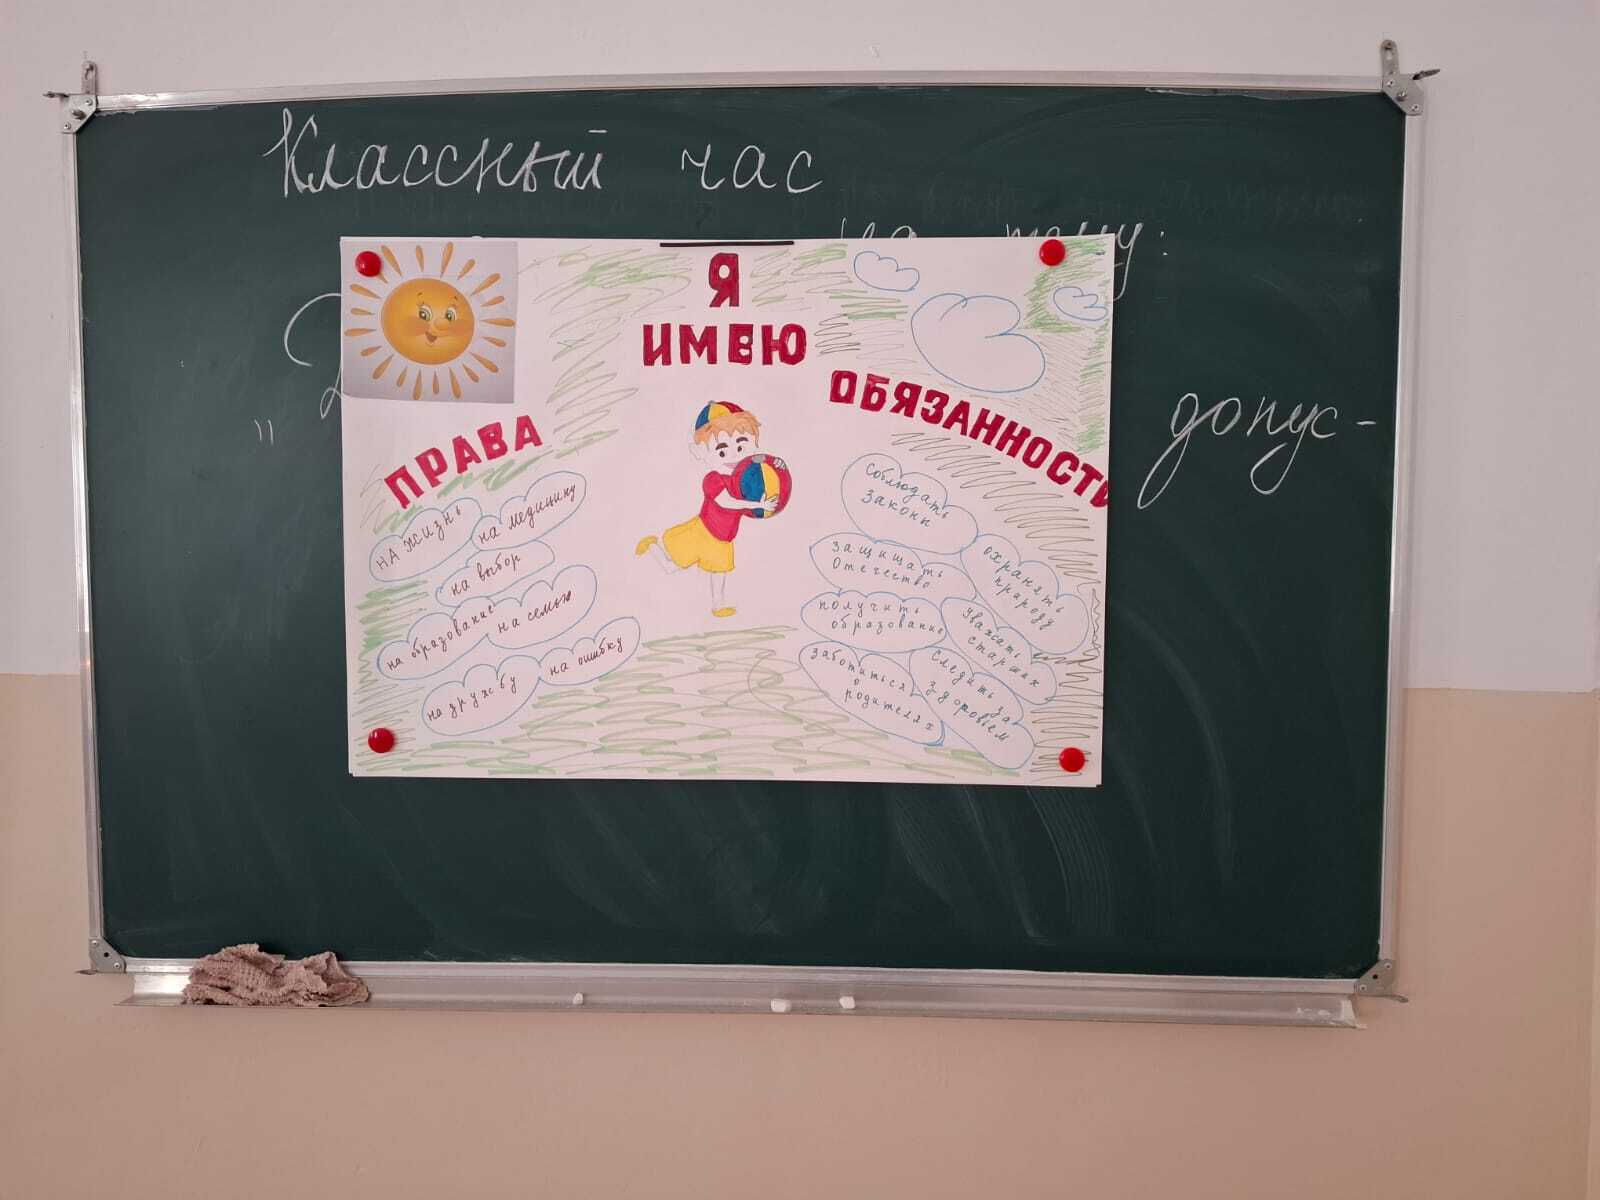 Классный час
на тему:
"
допус-
Я
ИМЕЮ
ПРАВА
ОБЯЗАННОСТИ
на жизнь
на медицину
на выбор
на образование
на семью
на дружбу
на ошибку
соблюдать
законы
защищать
Отечество
охранять
природу
получить
образование
уважать
старших
заботиться
о
родителях
следить за
здоровьем